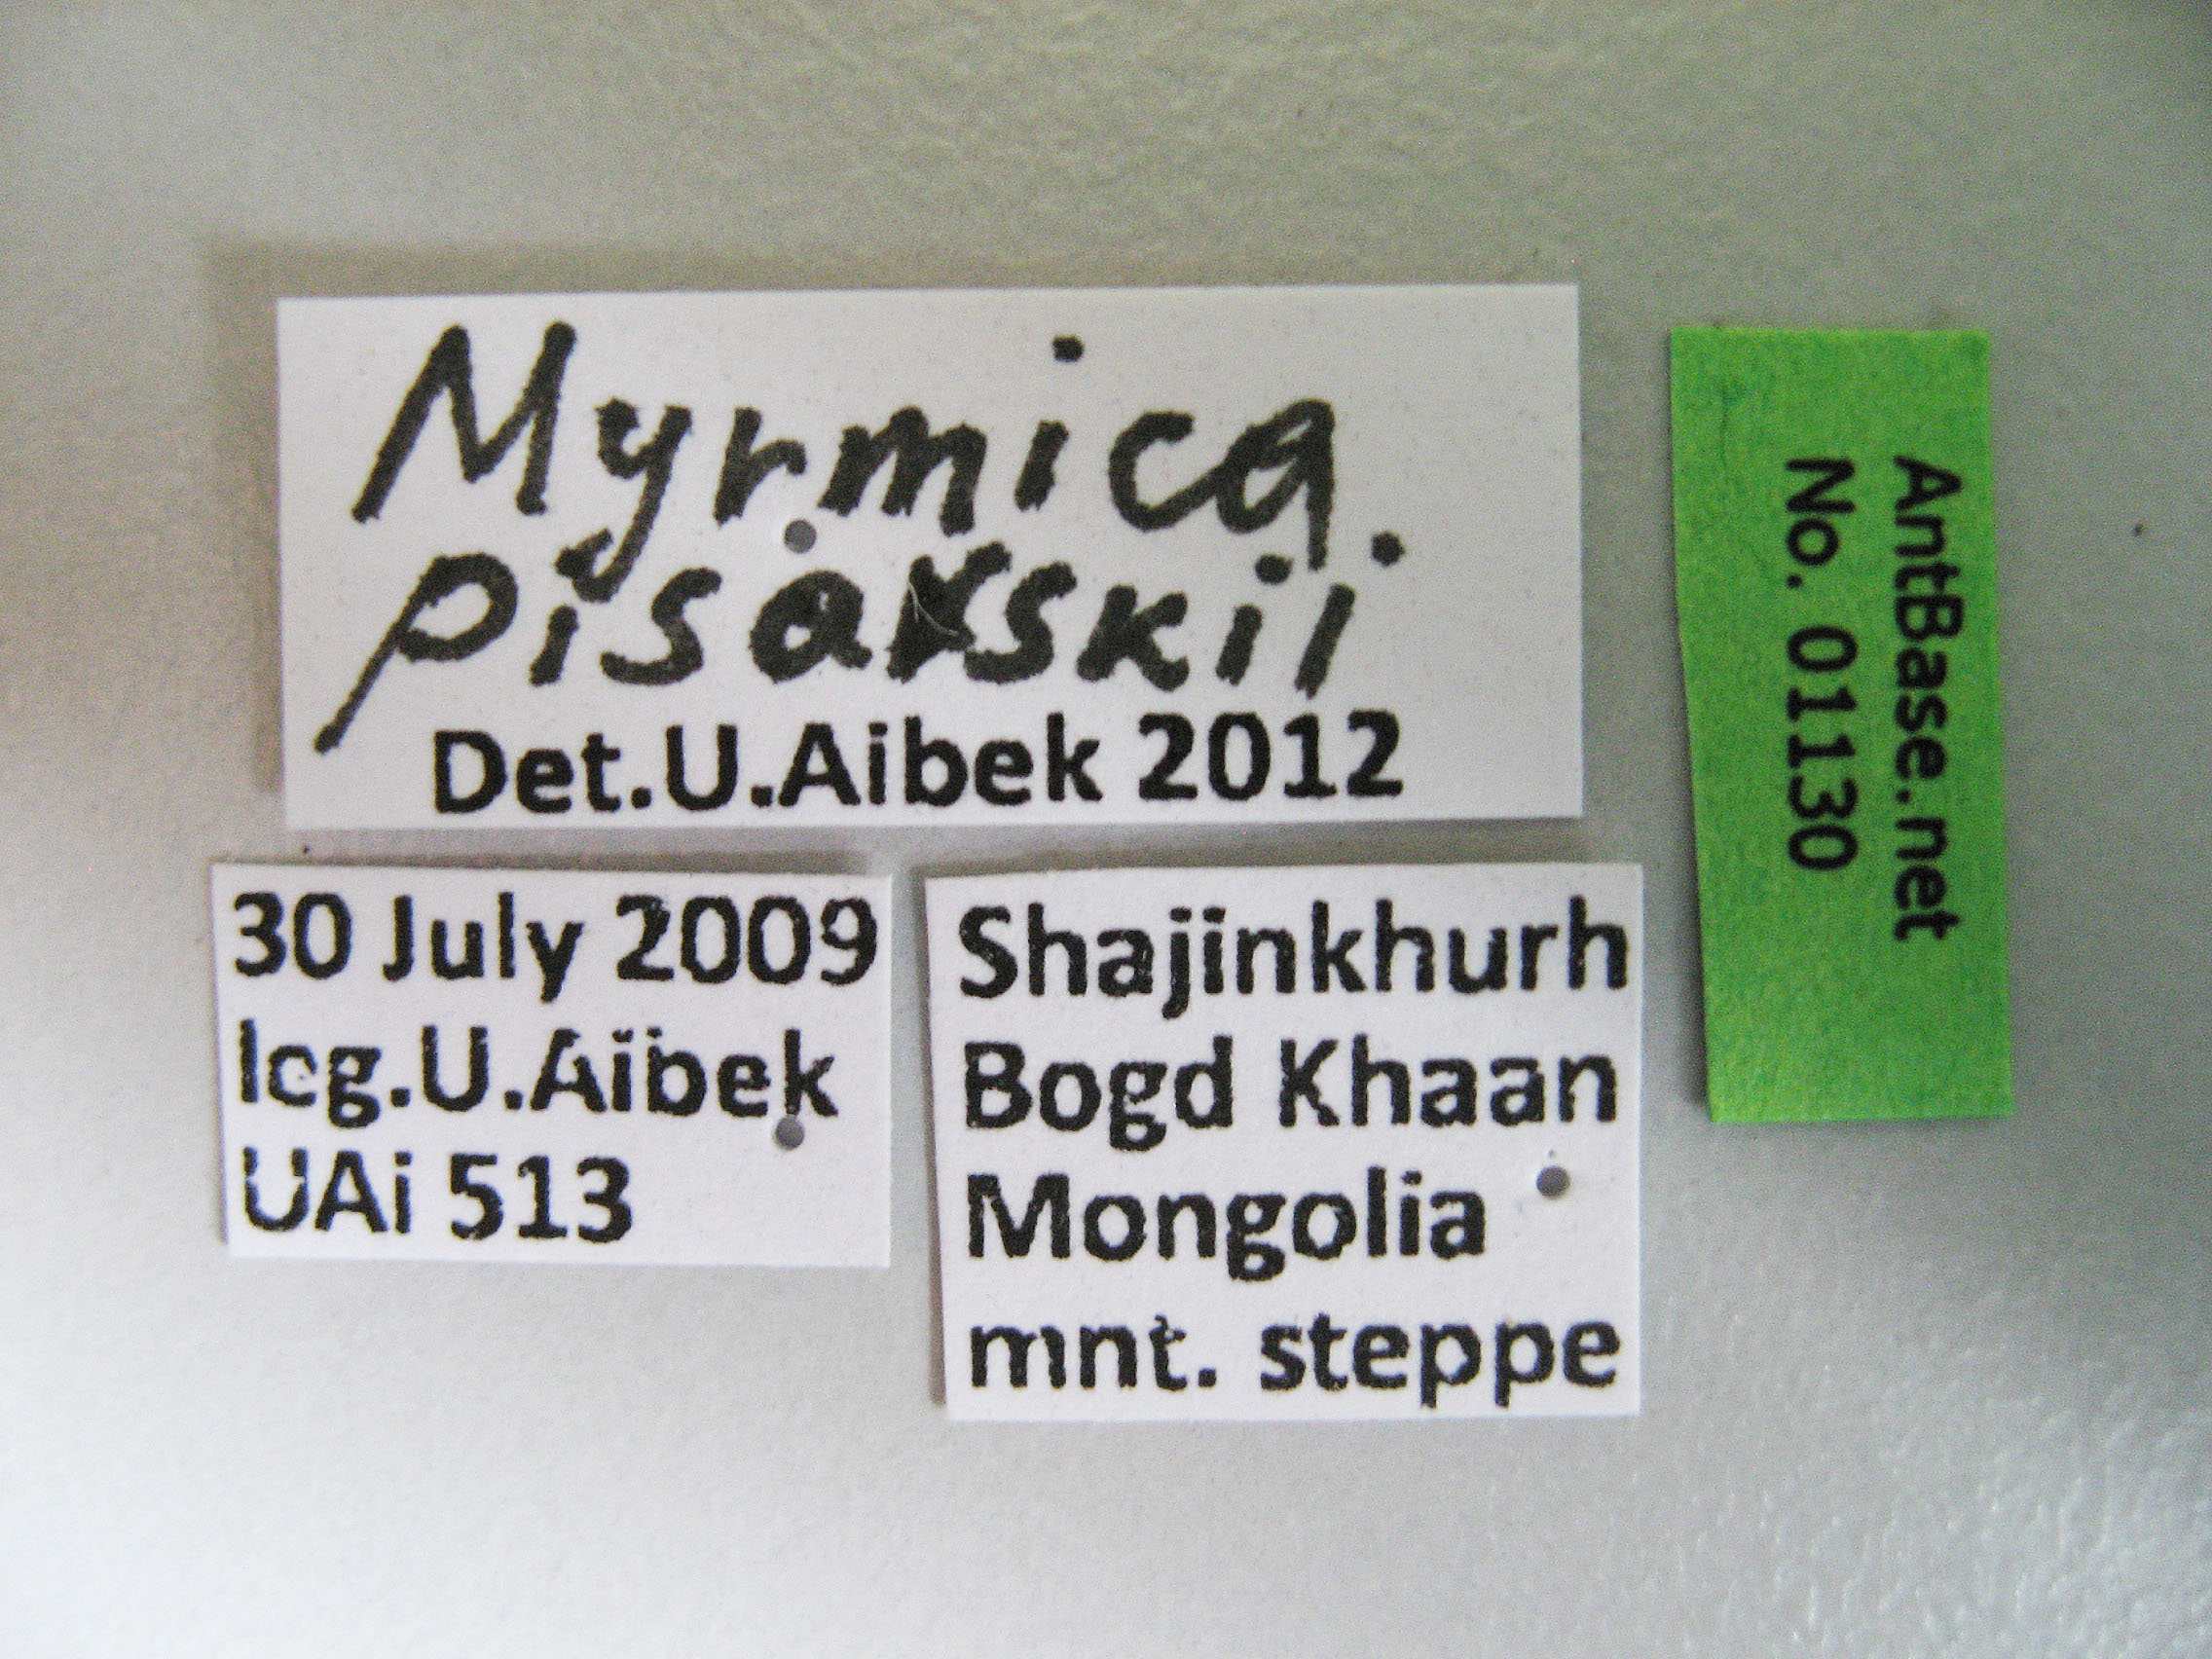 Myrmica
pisarskii
Det.U.Aibek 2012
30 July 2009
leg.U.Aibek
UAi 513
Shajinkhurh
Bogd Khaan
Mongolia
mnt. steppe
AntBase.net
No. 011130